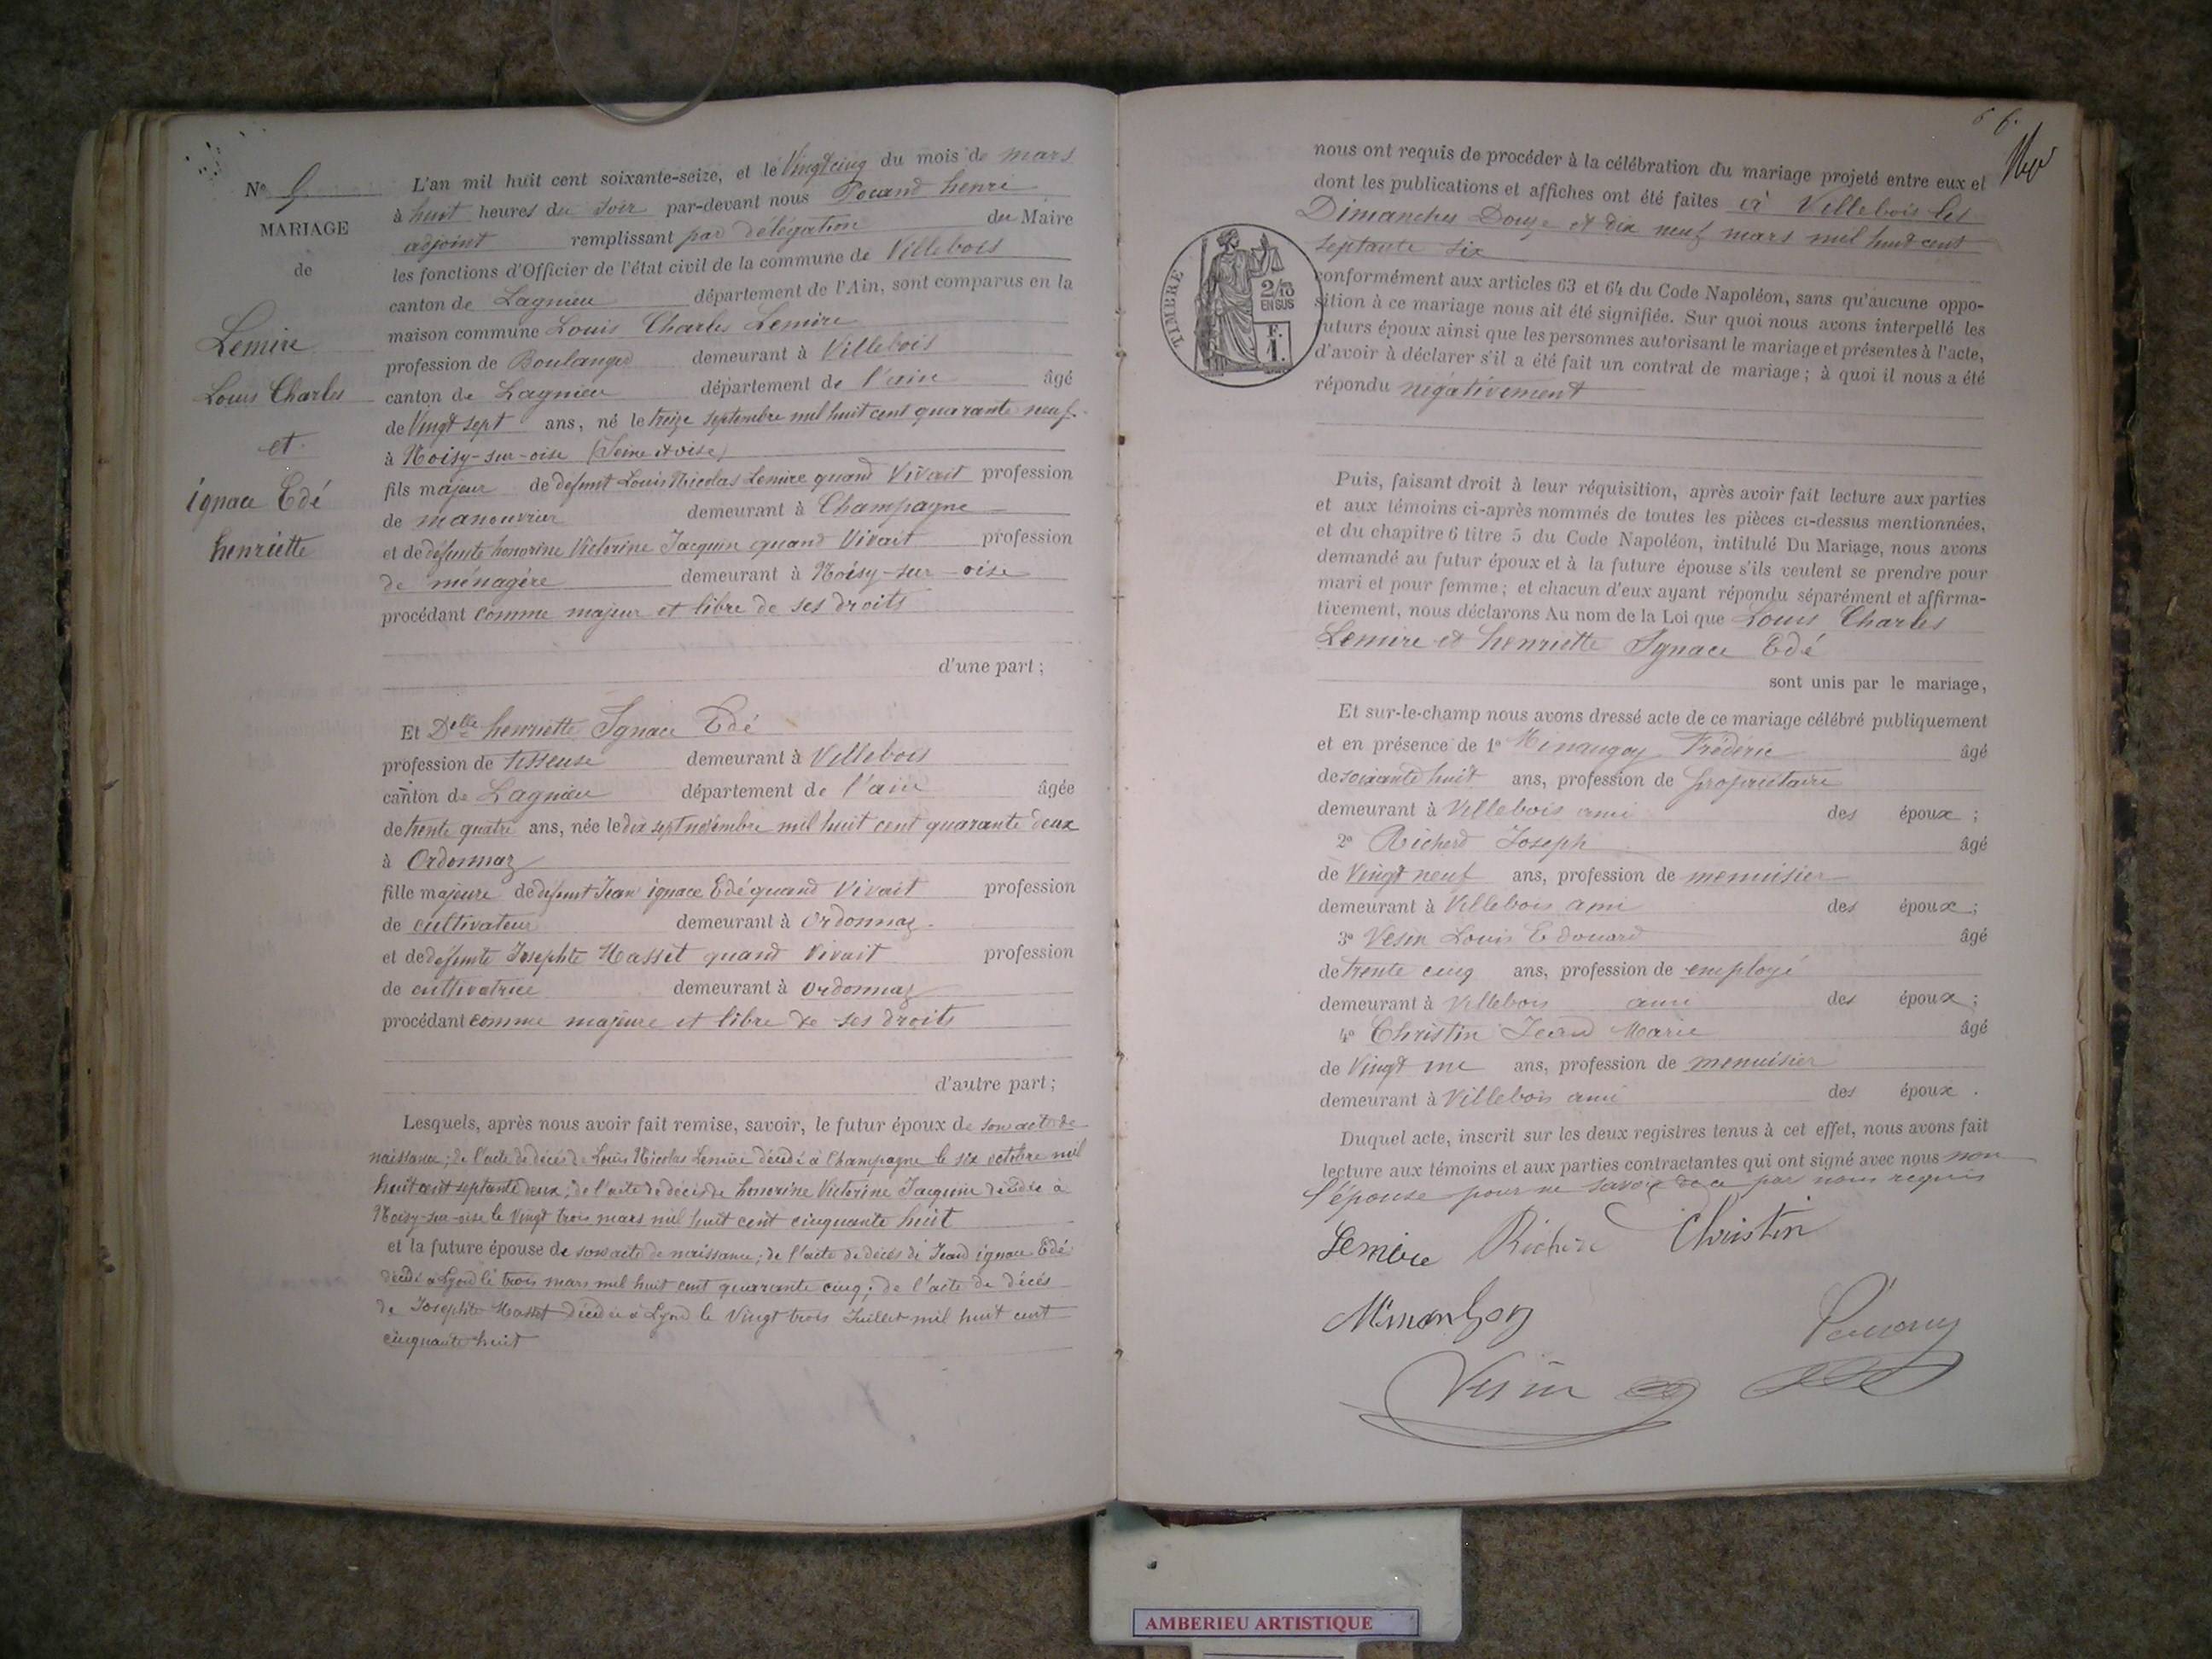 N° 5
MARIAGE
de
Lemire
Louis Charles
et
ignace Edé
henriette
L'an mil huit cent soixante-seize, et le Vingt cinq du mois de mars
à huit heures du soir par-devant nous Pocand henri
adjoint remplissant par délégation du Maire
les fonctions d'Officier de l'état civil de la commune de Villebois
canton de Lagnieu département de l'Ain, sont comparus en la
maison commune Louis Charles Lemire
profession de Boulanger demeurant à Villebois
canton de Lagnieu département de l'ain âgé
de Vingt sept ans, né le treize septembre mil huit cent quarante neuf
à Noisy-sur-oise (Seine et oise)
fils majeur de defunt Louis Nicolas Lemire quand Vivait profession
de manouvrier demeurant à Champagne
et de défunte honorine Victorine Jacquin quand Vivait profession
de ménagère demeurant à Noisy-sur-oise
procédant comme majeur et libre de ses droits
d'une part ;
Et Delle henriette Ignace Edé
profession de tisseuse demeurant à Villebois
canton de Lagnieu département de l'ain âgée
de trente quatre ans, née le dix sept novembre mil huit cent quarante deux
à Ordonnaz
fille majeure de defunt Jean ignace Edé quand Vivait profession
de cultivateur demeurant à Ordonnaz.
et de défunte Josephte Masset quand Vivait profession
de cultivatrice demeurant à Ordonnaz
procédant comme majeure et libre de ses droits
d'autre part ;
Lesquels, après nous avoir fait remise, savoir, le futur époux de son acte de
naissance ; de l'acte de décès de Louis Nicolas Lemire décédé à Champagne le six octobre mil
huit cent septante deux ; de l'acte de décès de honorine Victorine Jacquin décédée à
Noisy-sur-oise le Vingt trois mars mil huit cent cinquante huit
et la future épouse de son acte de naissance ; de l'acte de décès de Jean ignace Edé
décédé à Lyon le trois mars mil huit cent quarante cinq ; de l'acte de décès
de Josephte Masset décédée à Lyon le Vingt trois Juillet mil huit cent
cinquante huit
nous ont requis de procéder à la célébration du mariage projeté entre eux et
dont les publications et affiches ont été faites à Villebois les
Dimanches Douze et dix neuf mars mil huit cent
septante six
TIMBRE
2/10
EN SUS
F.
1.
conformément aux articles 63 et 64 du Code Napoléon, sans qu'aucune oppo-
sition à ce mariage nous ait été signifiée. Sur quoi nous avons interpellé les
futurs époux ainsi que les personnes autorisant le mariage et présentes à l'acte,
d'avoir à déclarer s'il a été fait un contrat de mariage ; à quoi il nous a été
répondu négativement
Puis, faisant droit à leur réquisition, après avoir fait lecture aux parties
et aux témoins ci-après nommés de toutes les pièces ci-dessus mentionnées,
et du chapitre 6 titre 5 du Code Napoléon, intitulé Du Mariage, nous avons
demandé au futur époux et à la future épouse s'ils veulent se prendre pour
mari et pour femme ; et chacun d'eux ayant répondu séparément et affirma-
tivement, nous déclarons Au nom de la Loi que Louis Charles
Lemire et henriette Ignace Edé
sont unis par le mariage,
Et sur-le-champ nous avons dressé acte de ce mariage célébré publiquement
et en présence de 1° Frédéric âgé
de soixante huit ans, profession de propriétaire
demeurant à Villebois ami des époux ;
2° Richerd Joseph âgé
de Vingt neuf ans, profession de menuisier
demeurant à Villebois ami des époux ;
3° Vesin Louis Edouard âgé
de trente cinq ans, profession de employé
demeurant à Villebois ami des époux ;
4° Christin Jean Marie âgé
de Vingt un ans, profession de menuisier
demeurant à Villebois ami des époux .
Duquel acte, inscrit sur les deux registres tenus à cet effet, nous avons fait
lecture aux témoins et aux parties contractantes qui ont signé avec nous non
l'épouse pour ne savoir de ce par nous requis
Lemire Richerd Christin
Vesin
AMBERIEU ARTISTIQUE